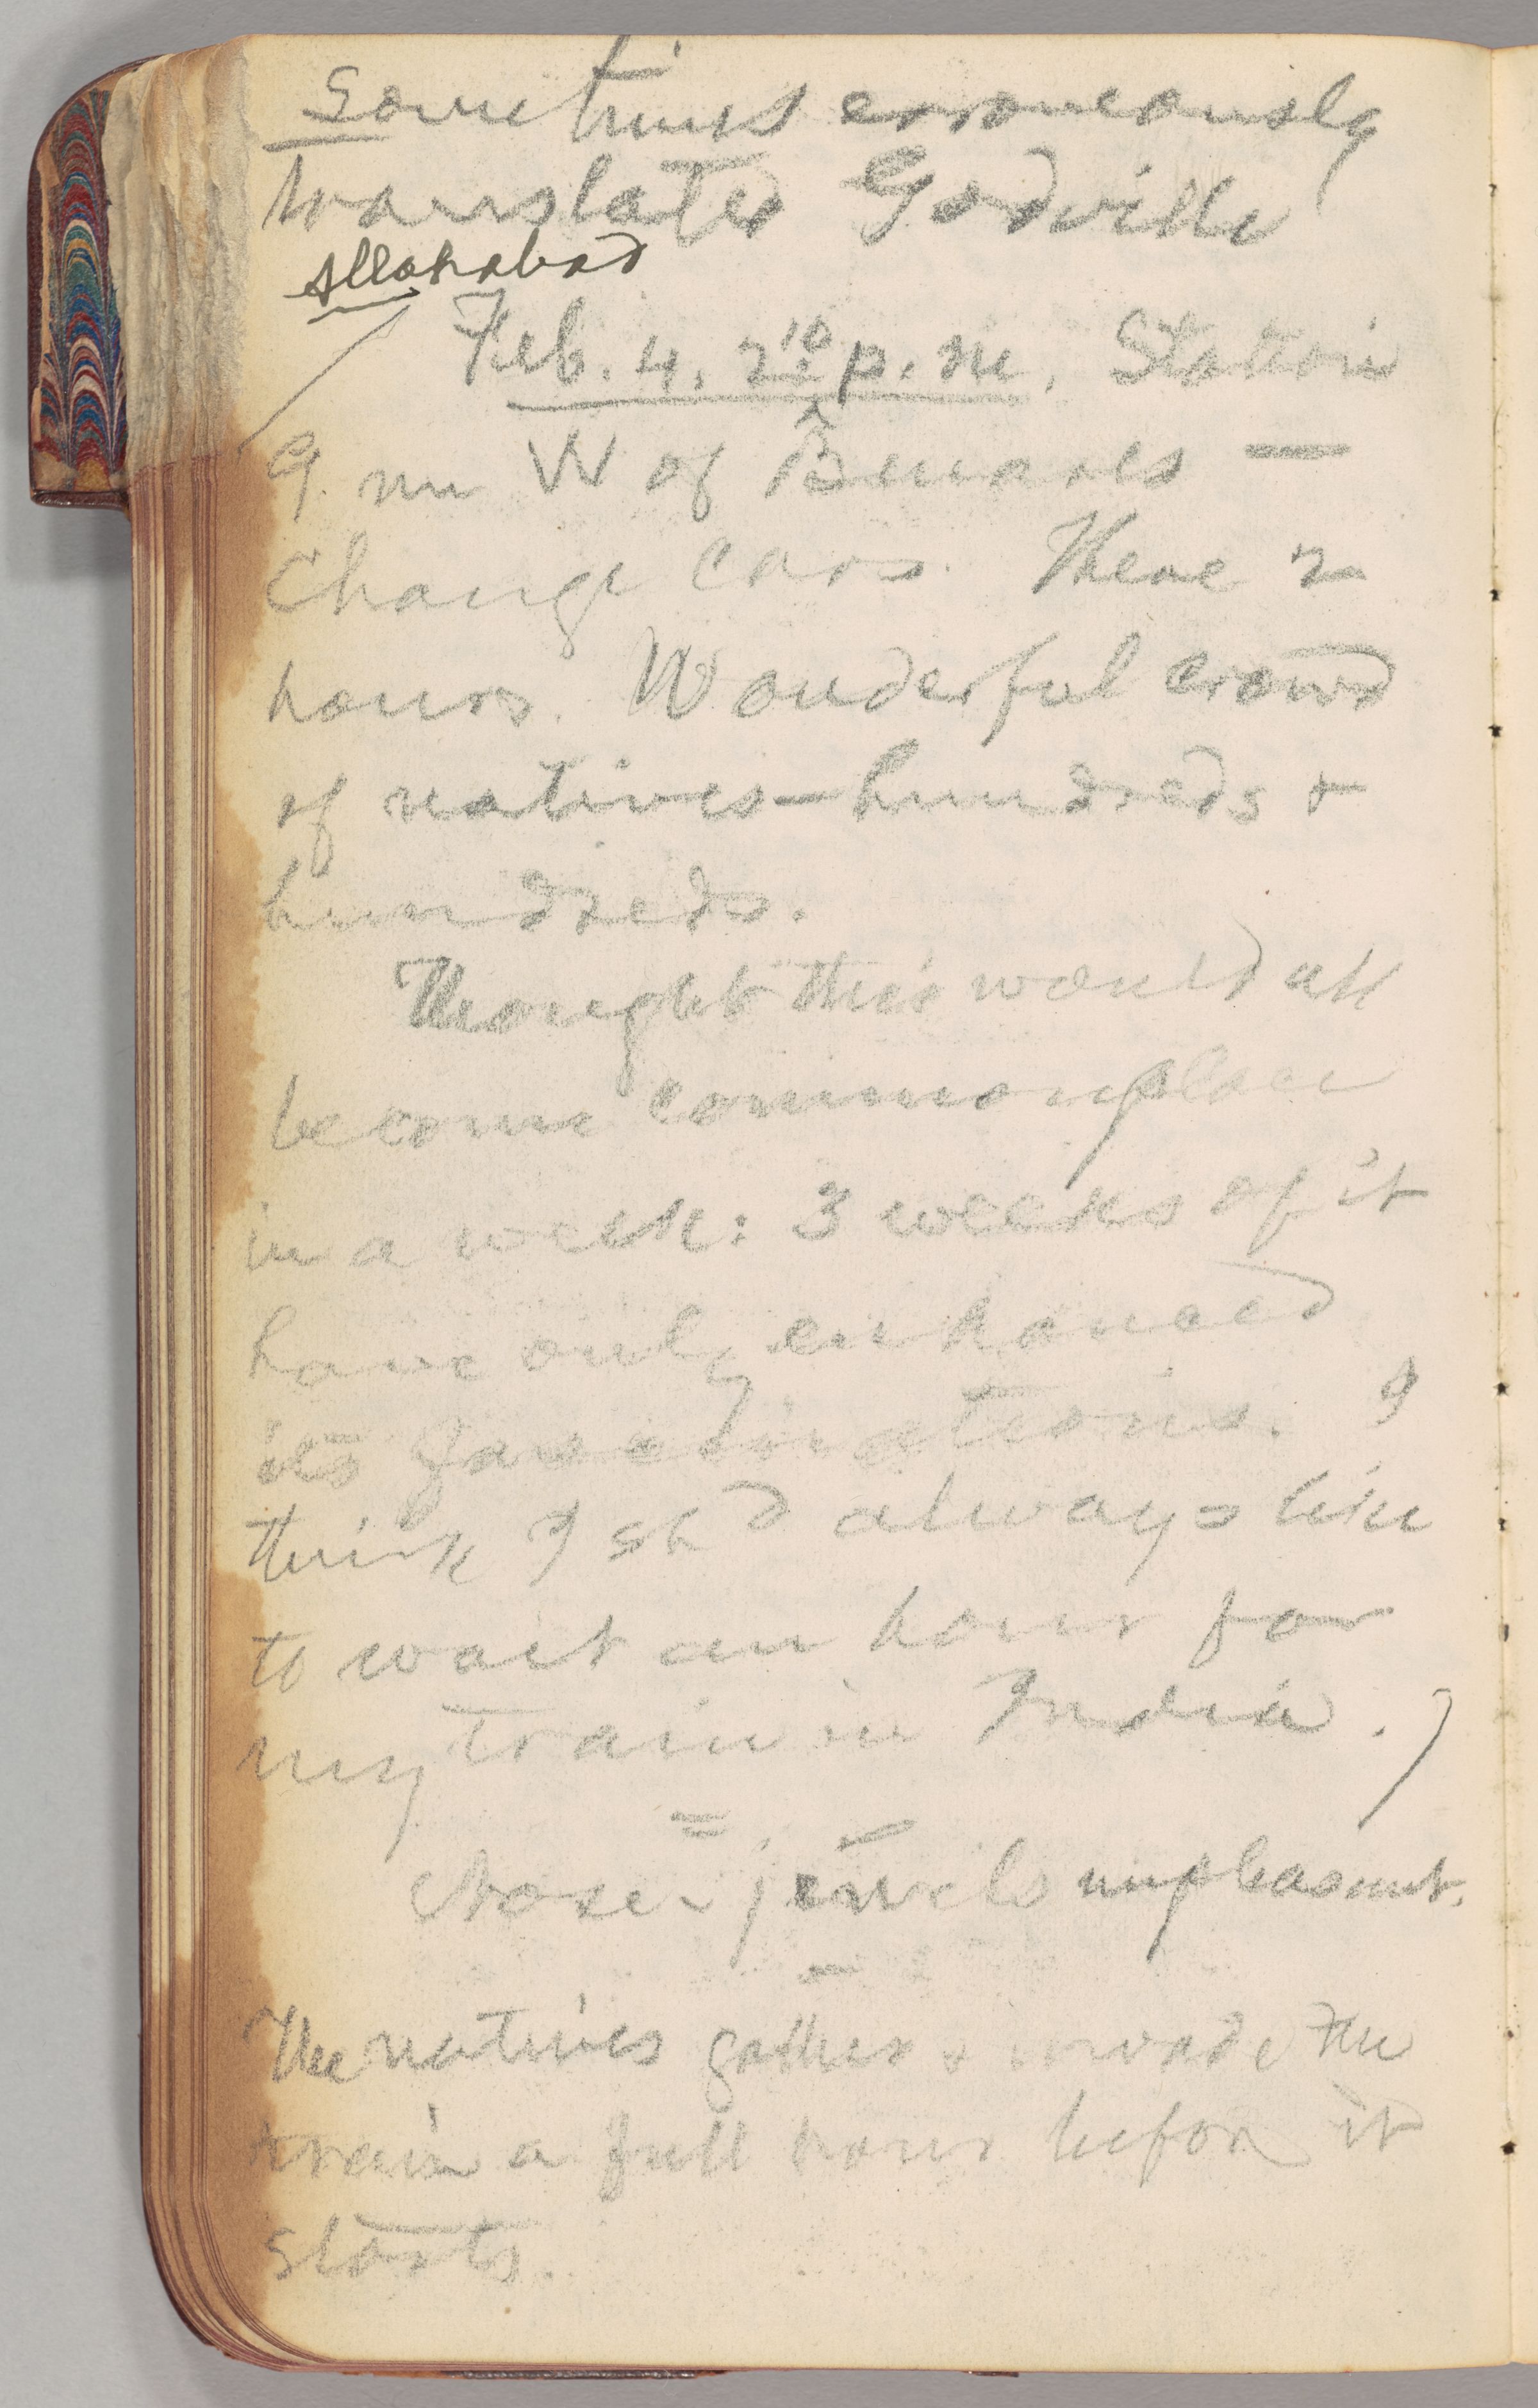 Sometimes erroneously
translated Godville
Allahabad
Feb. 4. 2.10 p.m. Station
9. m W of Benares —
Change cars. There 2
hours. Wonderful crowd
of natives—hundreds &
hundreds.
Thought this would all
become commonplace
in a week: 3 weeks of it
have only enhanced
its fascinations. I
think I shd always like
to wait an hour for
my train in India.)
=
Nose-jewels unpleasant.
—
The natives gather & invade the
train a full hour before it
starts.